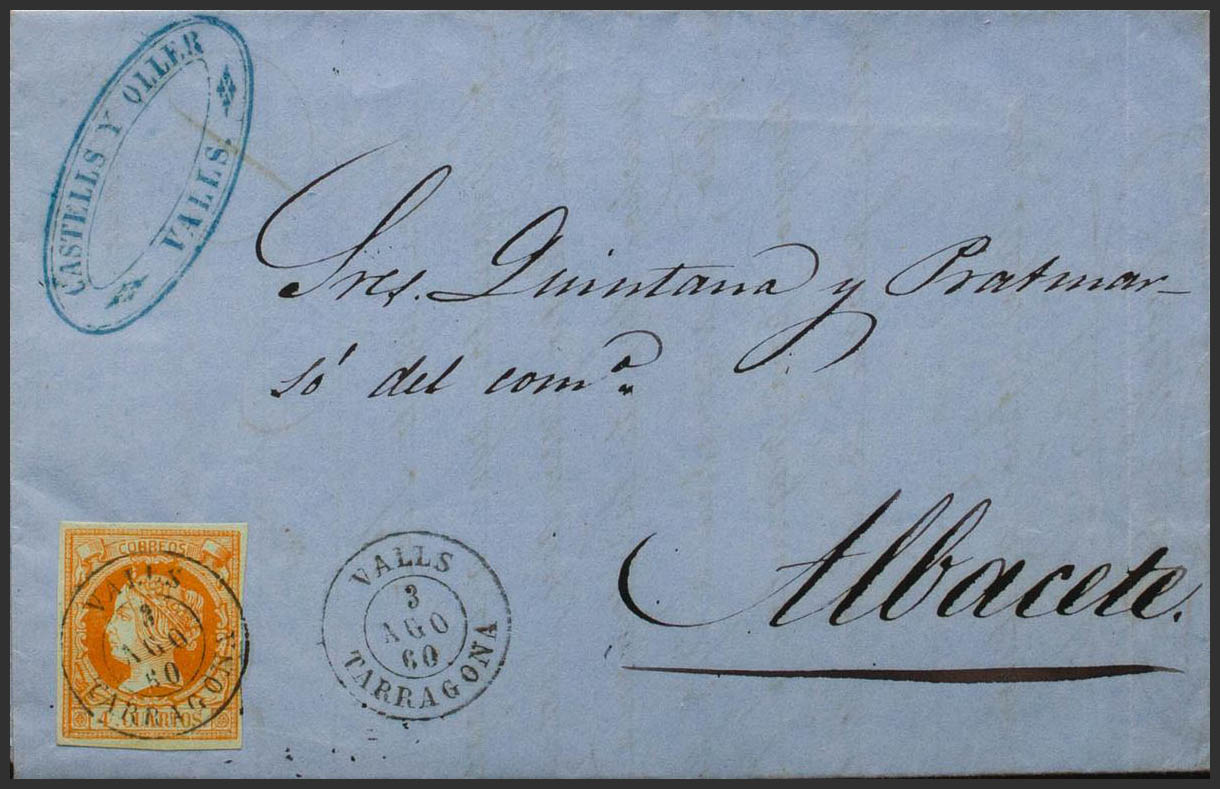 CASTELLS Y OLLER
VALLS.
Sres. Quintana y Pratmar-
só del comº.
Albacete.
CORREOS
VALLS
3
AGO
60
TARRAGONA
4 CUARTOS
VALLS
3
AGO
60
TARRAGONA